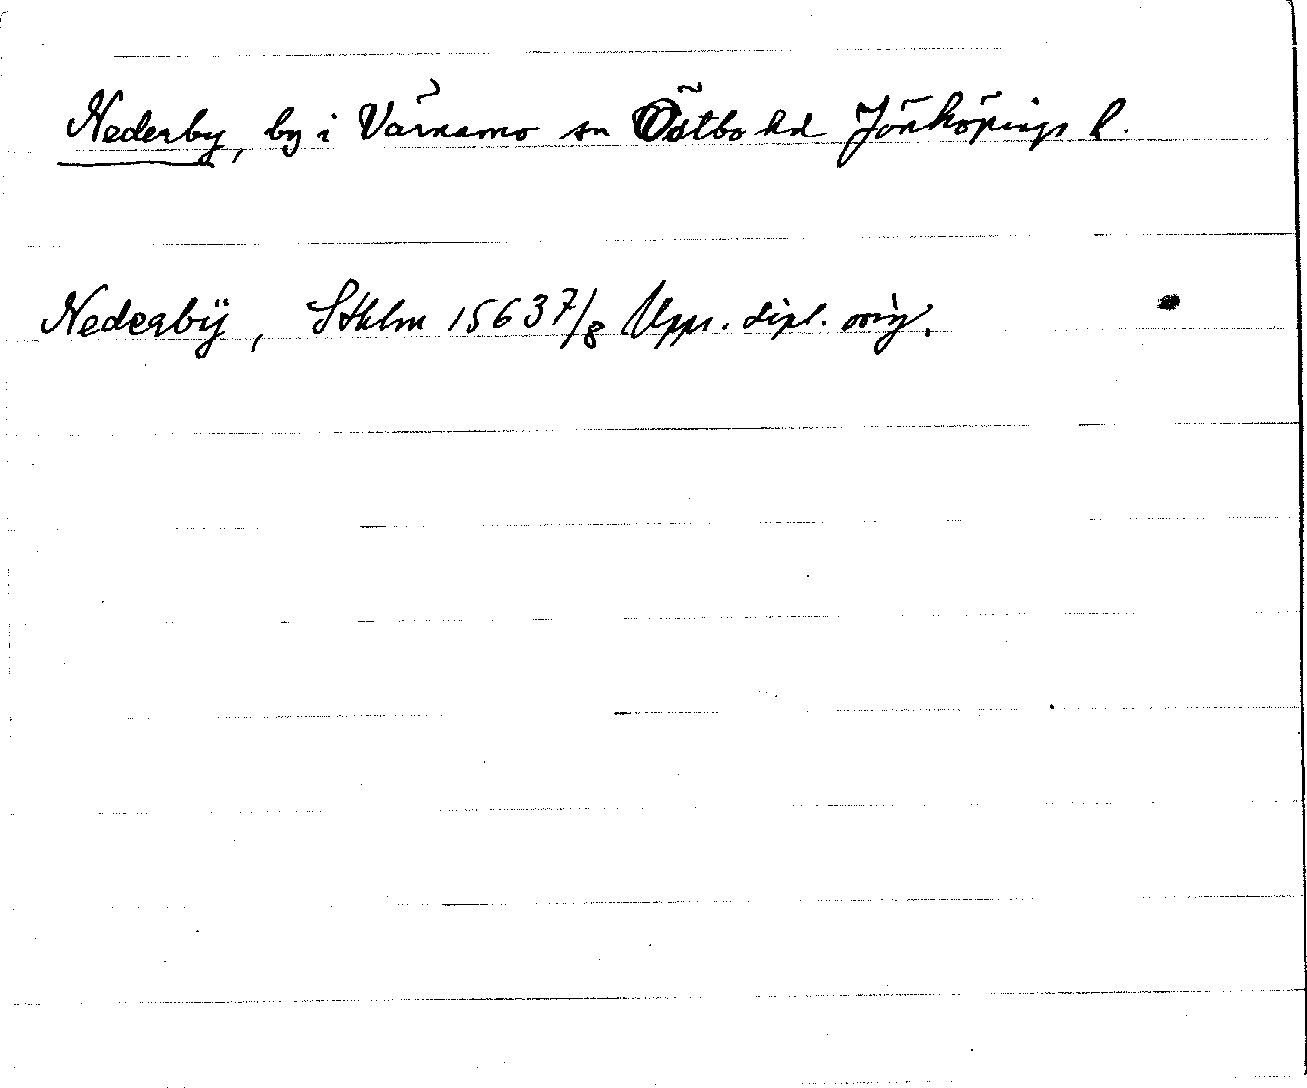 Nederby, by i Värnamo sn Östbo hd Jönköpings l.
Nederbÿ, Sthlm 1563 7/8 Upps. dipl. orig.